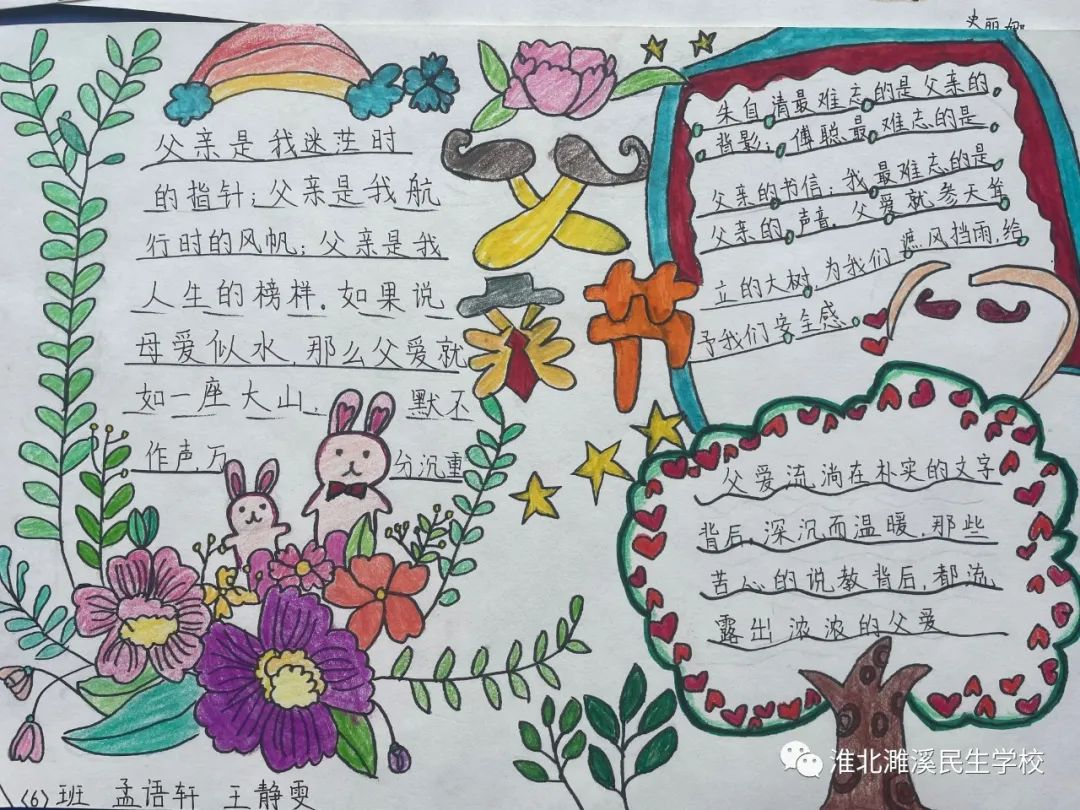 史丽娜
父亲是我迷茫时
的指针；父亲是我航
行时的风帆；父亲是我
人生的榜样．如果说
母爱似水，那么父爱就
如一座大山，默不
作声，万分沉重
父亲节
朱自清最难忘的是父亲的
背影；傅聪最难忘的是
父亲的书信；我最难忘的是
父亲的声音．父爱就参天耸
立的大树，为我们遮风挡雨，给
予我们安全感．
父爱流淌在朴实的文字
背后，深沉而温暖．那些
苦心的说教背后，都流
露出浓浓的父爱
(6)班 孟语轩 王静雯
淮北濉溪民生学校